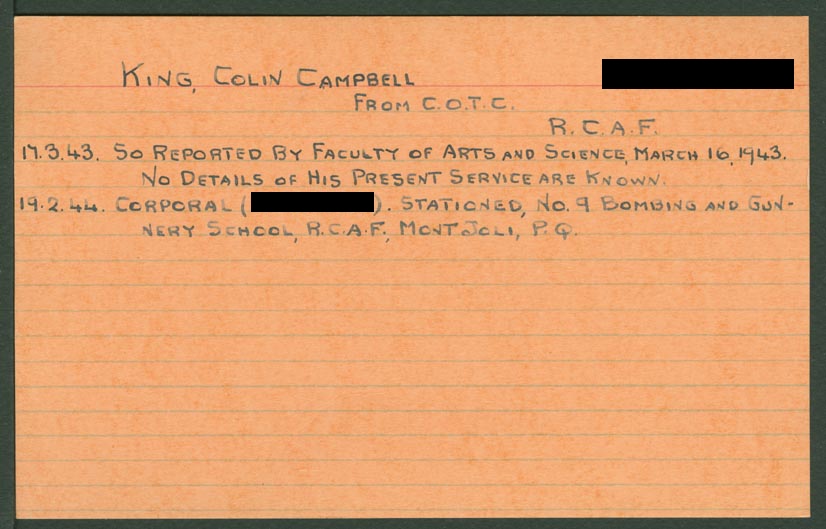 KING, COLIN CAMPBELL
FROM C.O.T.C.
R.C.A.F.
17.3.43. SO REPORTED BY FACULTY OF ARTS AND SCIENCE, MARCH 16, 1943.
NO DETAILS OF HIS PRESENT SERVICE ARE KNOWN.
19.2.44. CORPORAL ( ). STATIONED, NO. 9 BOMBING AND GUN-
NERY SCHOOL, R.C.A.F., MONT JOLI, P.Q.